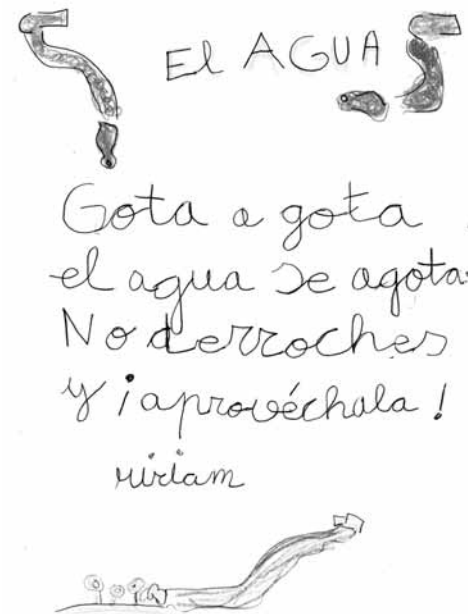 El AGUA
Gota a gota
el agua se agota.
No derroches
y ¡aprovéchala!
miriam